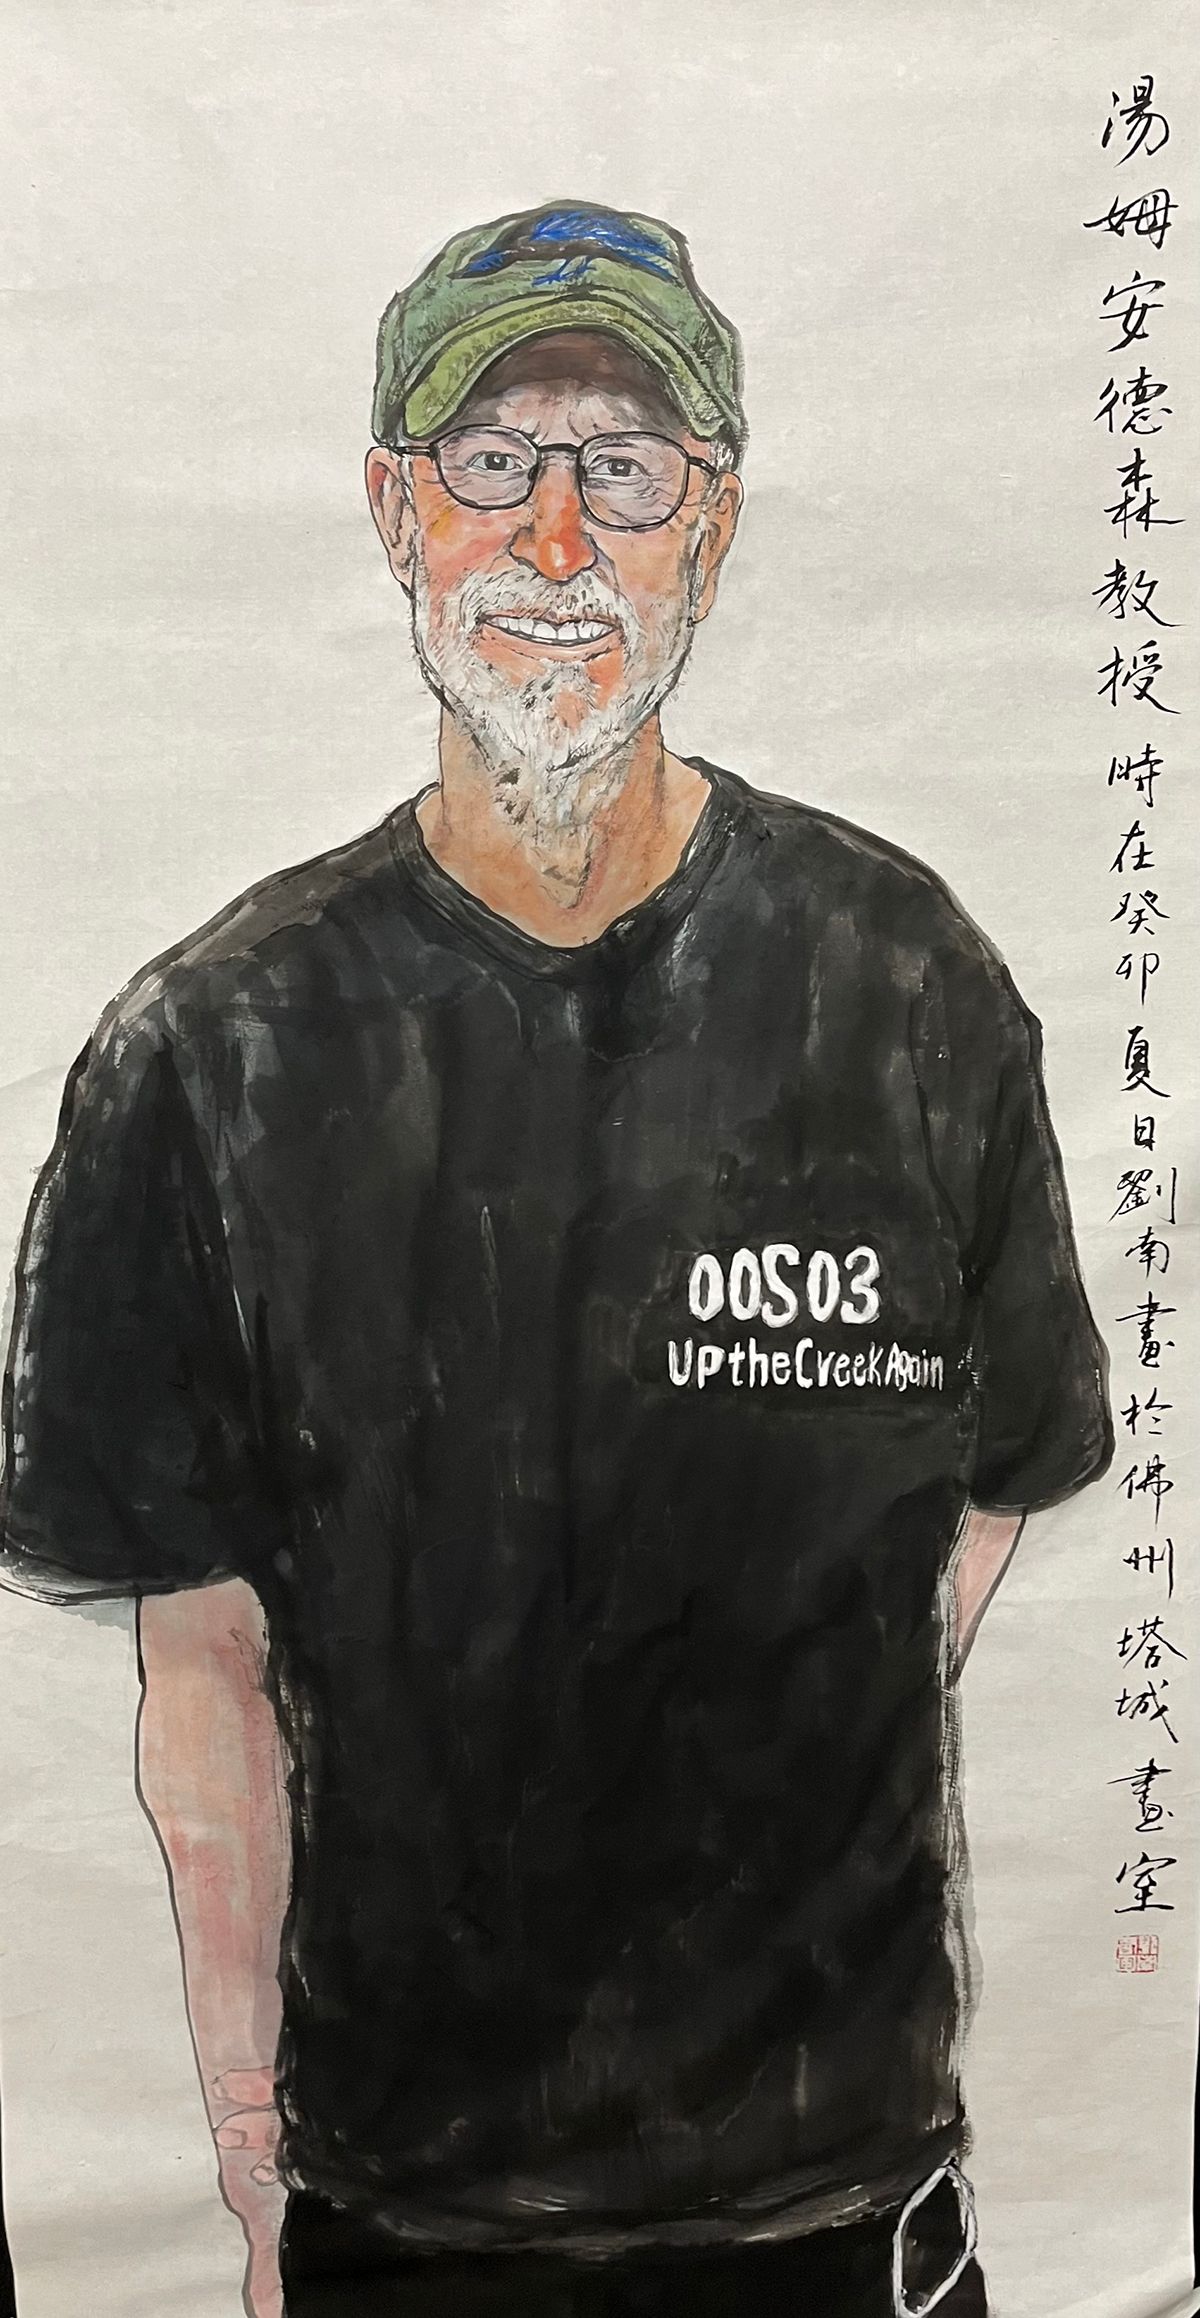 湯姆安德森教授 時在癸卯夏日劉南畫於佛州塔城畫室
OOSO3
UptheCreekAgain